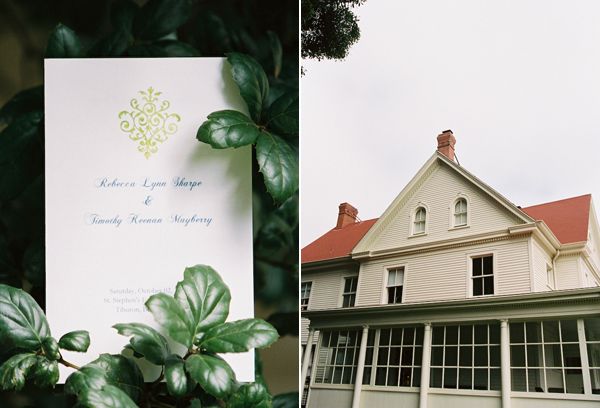 Rebecca Lynn Sharpe
&
Timothy Keenan Mayberry
Saturday, October 02,
St. Stephen's
Tiburon,